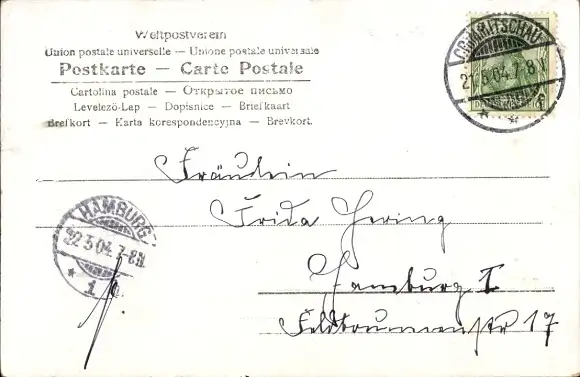 Weltpostverein
Union postale universelle — Unione postale universale
Postkarte — Carte Postale
Cartolina postale — Открытое письмо
Levelező-Lap — Dopisnice — Briefkaart
Brefkort — Karta korespondencyjna — Brevkort.
COLMNITZ
21.5.04.7-8V.
HAMBURG
22.5.04.7-8N.
* 1
Fräulein
Frida Gering
Hamburg I
Feldbrunnenstr 17